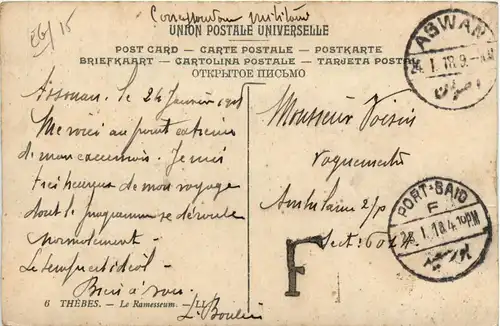 EG/15
Correspondance militaire
UNION POSTALE UNIVERSELLE
POST CARD – CARTE POSTALE – POSTKARTE
BRIEFKAART – CARTOLINA POSTALE – TARJETA POSTAL
ОТКРЫТОЕ ПИСЬМО
ASWAN
24 I 18 9
أصوان
Assouan, le 24 Janvier
Me voici au point extrême
de mon excursion. Je suis
très heureux de mon voyage
dont le programme se déroule
normalement –
Le temps est idéal –
Bien à vous.
L. Boulin
Monsieur Voisin
Vaguemestre
Ambulance 2/
Sect:
PORT-SAID
F
I 18 4 10 PM
بورسعيد
F
6 THÈBES. – Le Ramesseum. – LL